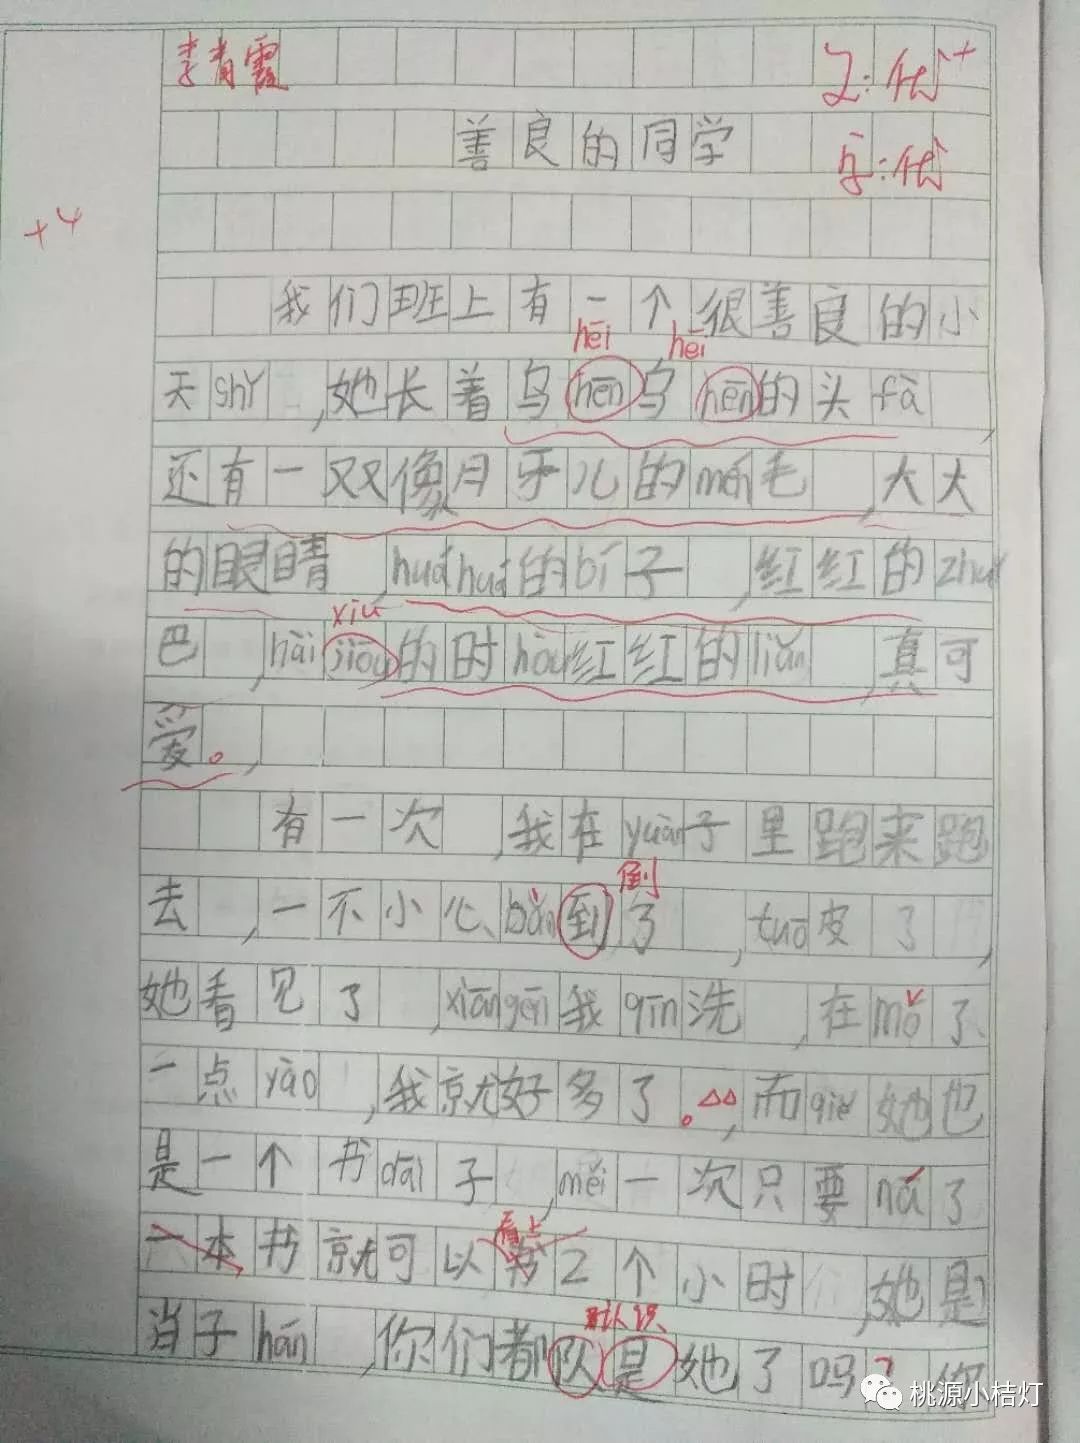 李青霞
习:优+
字:优
善良的同学
+4
我们班上有一个很善良的小
hēi hēi
天shǐ,她长着乌hēn乌hēn的头fà,
还有一双又像月牙儿的méi毛,大大
的眼睛,huáhuá的bí子,红红的zhuǐ
xiū
巴,hàijiōu的时hòu红红的liǎn,真可
爱。,
有一次,我在yuàn子里跑来跑
倒
去,一不小心bàn到了,tuō皮了,
她看见了,xiāngēn我qīn洗,在mǒ了
一点yào,我就好多了。,而qiě她也
是一个书dāi子,měi一次只要ná了
看上
一本书就可以书2个小时,她是
认识
当子hán,你们都队是她了吗?你
桃源小桔灯